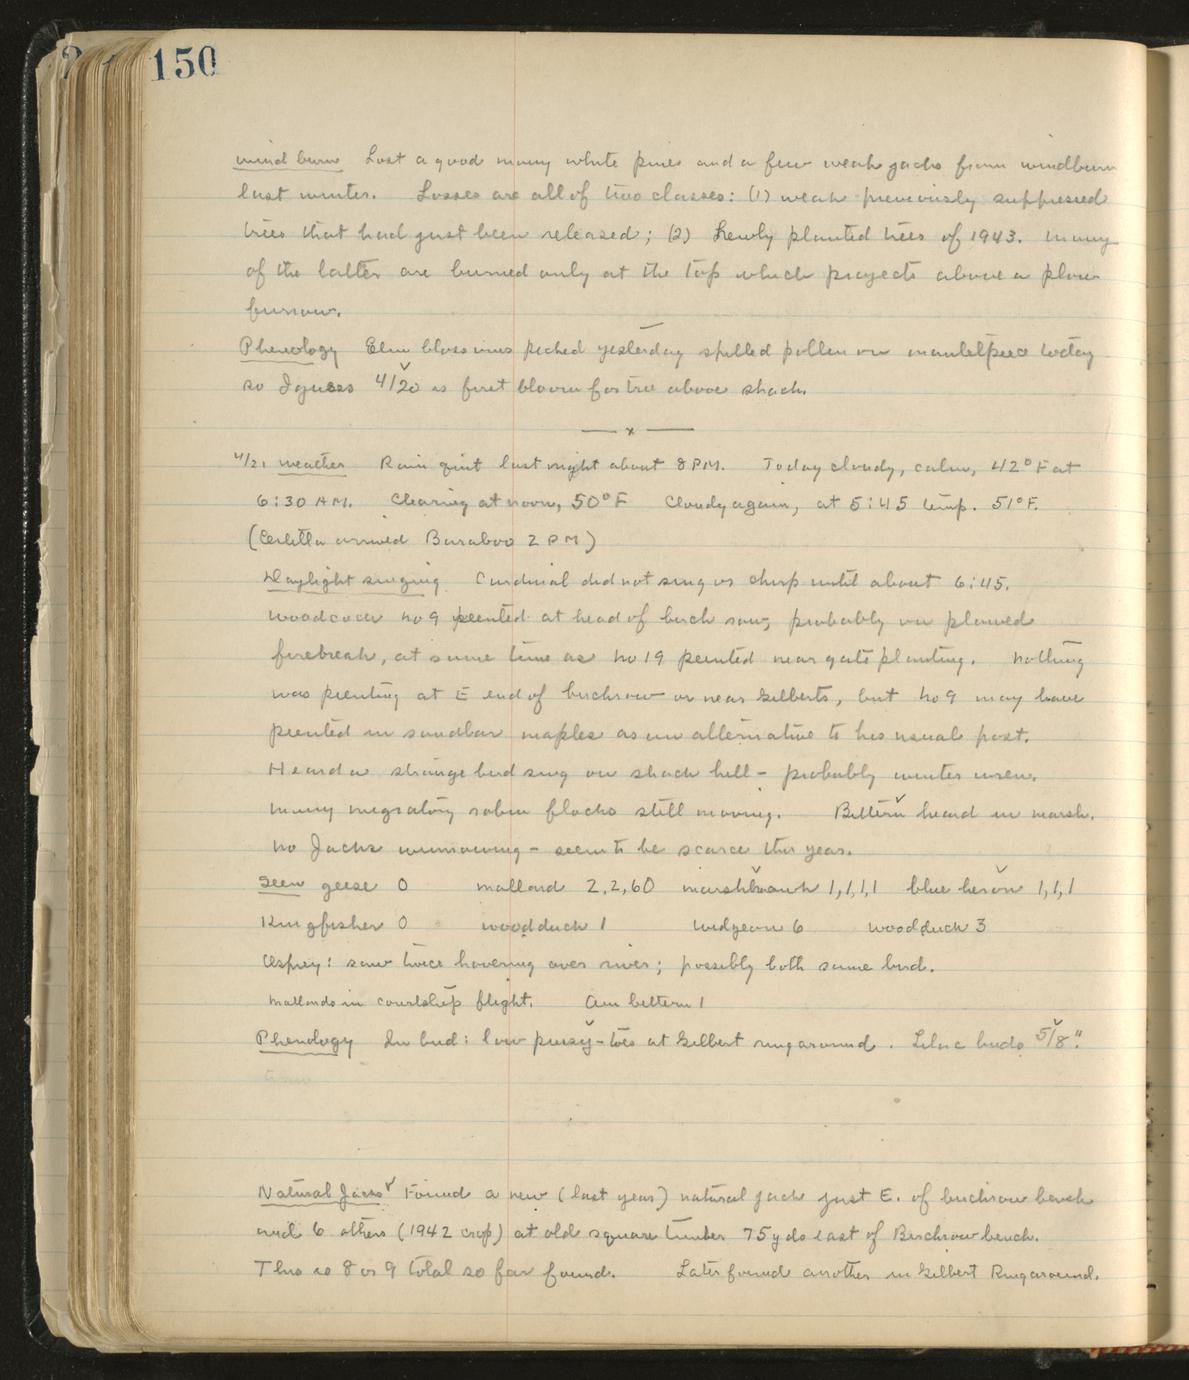 150
Windburn Lost a good many white pines and a few weak jacks from windburn
last winter. Losses are all of two classes: (1) weak previously suppressed
trees that had just been released; (2) Newly planted trees of 1943. Many
of the latter are burned only at the top which projects above a plow
furrow.
Phenology Elm blossoms picked yesterday spilled pollen on mantelpiece today
so I guess 4/20 is first bloom for tree above shack.
— x —
4/21 Weather Rain quit last night about 8 PM. Today cloudy, calm, 42°F at
6:30 AM. Clearing at noon, 50°F Cloudy again, at 5:45 temp. 51°F.
(Estella arrived Baraboo 2 PM)
Daylight singing Cardinal did not sing or chirp until about 6:45.
Woodcock No 9 peented at head of birch row, probably on plowed
firebreak, at same time as No 19 peented near gate planting. Nothing
was peenting at E end of birchrow or near Gilberts, but No 9 may have
peented in sandbar maples as an alternative to his usual post.
Heard a strange bird sing on shack hill - probably winter wren.
Many migratory robin flocks still moving. Bittern heard in marsh.
No Jacks winnowing - seem to be scarce this year.
Seen geese 0 mallard 2,2,60 marshhawk 1,1,1,1 blue heron 1,1,1
Kingfisher 0 woodduck 1 widgeon 6 woodduck 3
Osprey: saw twice hovering over river; possibly both same bird.
Mallards in courtship flight. Am bittern 1
Phenology In bud: low pussy-toes at Gilbert ringaround. Lilac buds 5/8".
Natural Jacks Found a new (last year) natural jack just E. of birchrow bench
and 6 others (1942 crop) at old square timber 75 yds east of Birchrow bench.
This is 8 or 9 total so far found. Later found another in Gilbert Ringaround.